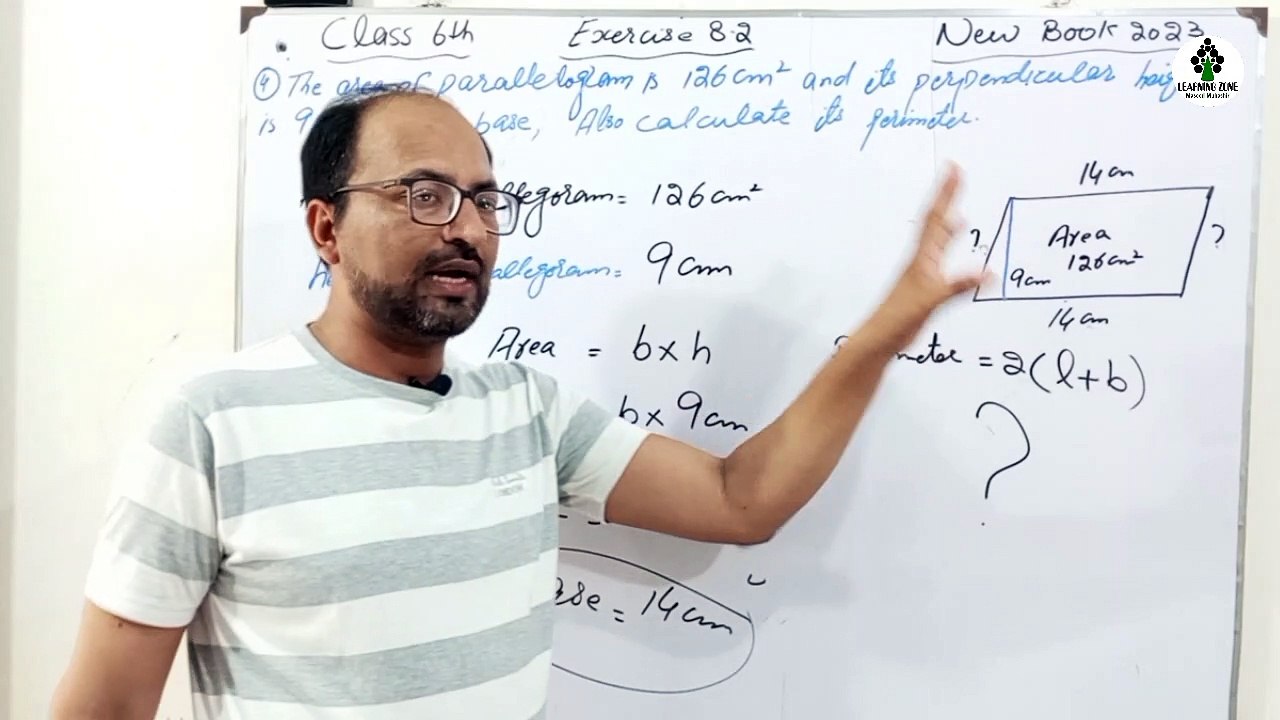 Class 6th Exercise 8.2 New Book 2023
LEARNING ZONE
④ The area of parallelogram is 126cm² and its perpendicular heig
is 9 base, Also calculate its perimeter.
allegoram = 126cm²
allegoram = 9cm
Area = b×h
b× 9cm
ase = 14cm
14cm
? ?
Area
126cm²
9cm
14cm
meter = 2(l+b)
?